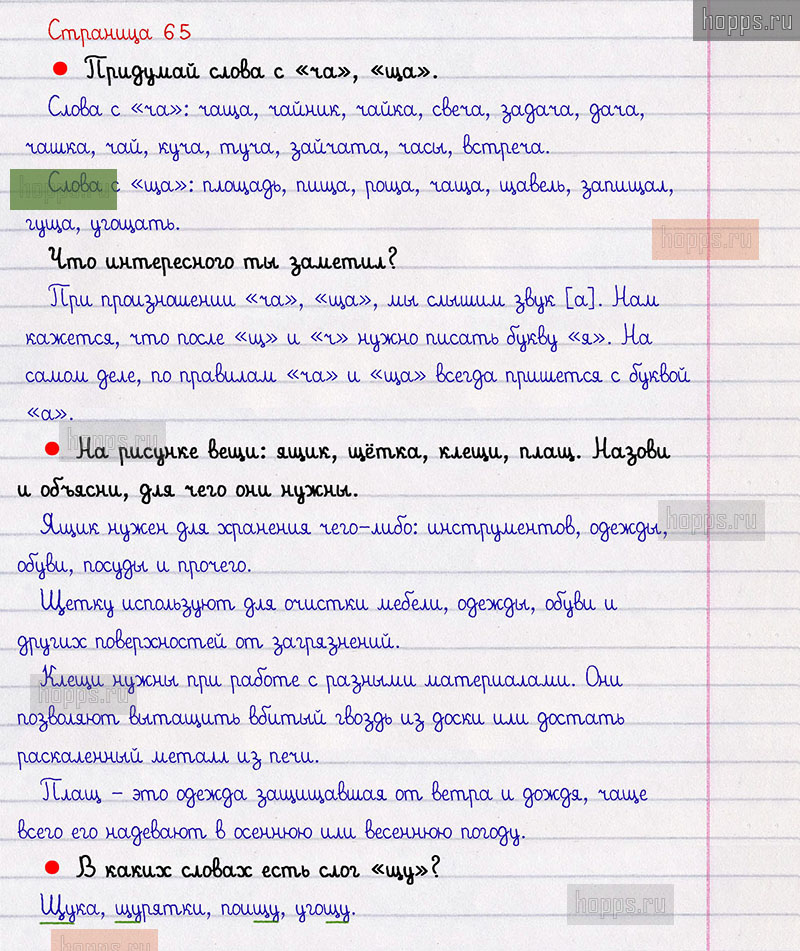 hopps.ru
Страница 65
Придумай слова с «ча», «ща».
Слова с «ча»: чаща, чайник, чайка, свеча, задача, дача,
чашка, чай, куча, туча, зайчата, часы, встреча.
hopps.ru
Слова с «ща»: площадь, пища, роща, чаща, щавель, запищал,
гуща, угощать.
hopps.ru
Что интересного ты заметил?
При произношении «ча», «ща», мы слышим звук [а]. Нам
кажется, что после «щ» и «ч» нужно писать букву «я». На
самом деле, по правилам «ча» и «ща» всегда пришется с буквой
«а».
hopps.ru
На рисунке вещи: ящик, щётка, клещи, плащ. Назови
и объясни, для чего они нужны.
Ящик нужен для хранения чего-либо: инструментов, одежды,
hopps.ru
обуви, посуды и прочего.
Щетку используют для очистки мебели, одежды, обуви и
других поверхностей от загрязнений.
Клещи нужны при работе с разными материалами. Они
hopps.ru
позволяют вытащить вбитый гвоздь из доски или достать
раскаленный металл из печи.
Плащ – это одежда защищавшая от ветра и дождя, чаще
всего его надевают в осеннюю или весеннюю погоду.
В каких словах есть слог «щу»?
Щука, щурятки, поищу, угощу.
hopps.ru
hopps.ru